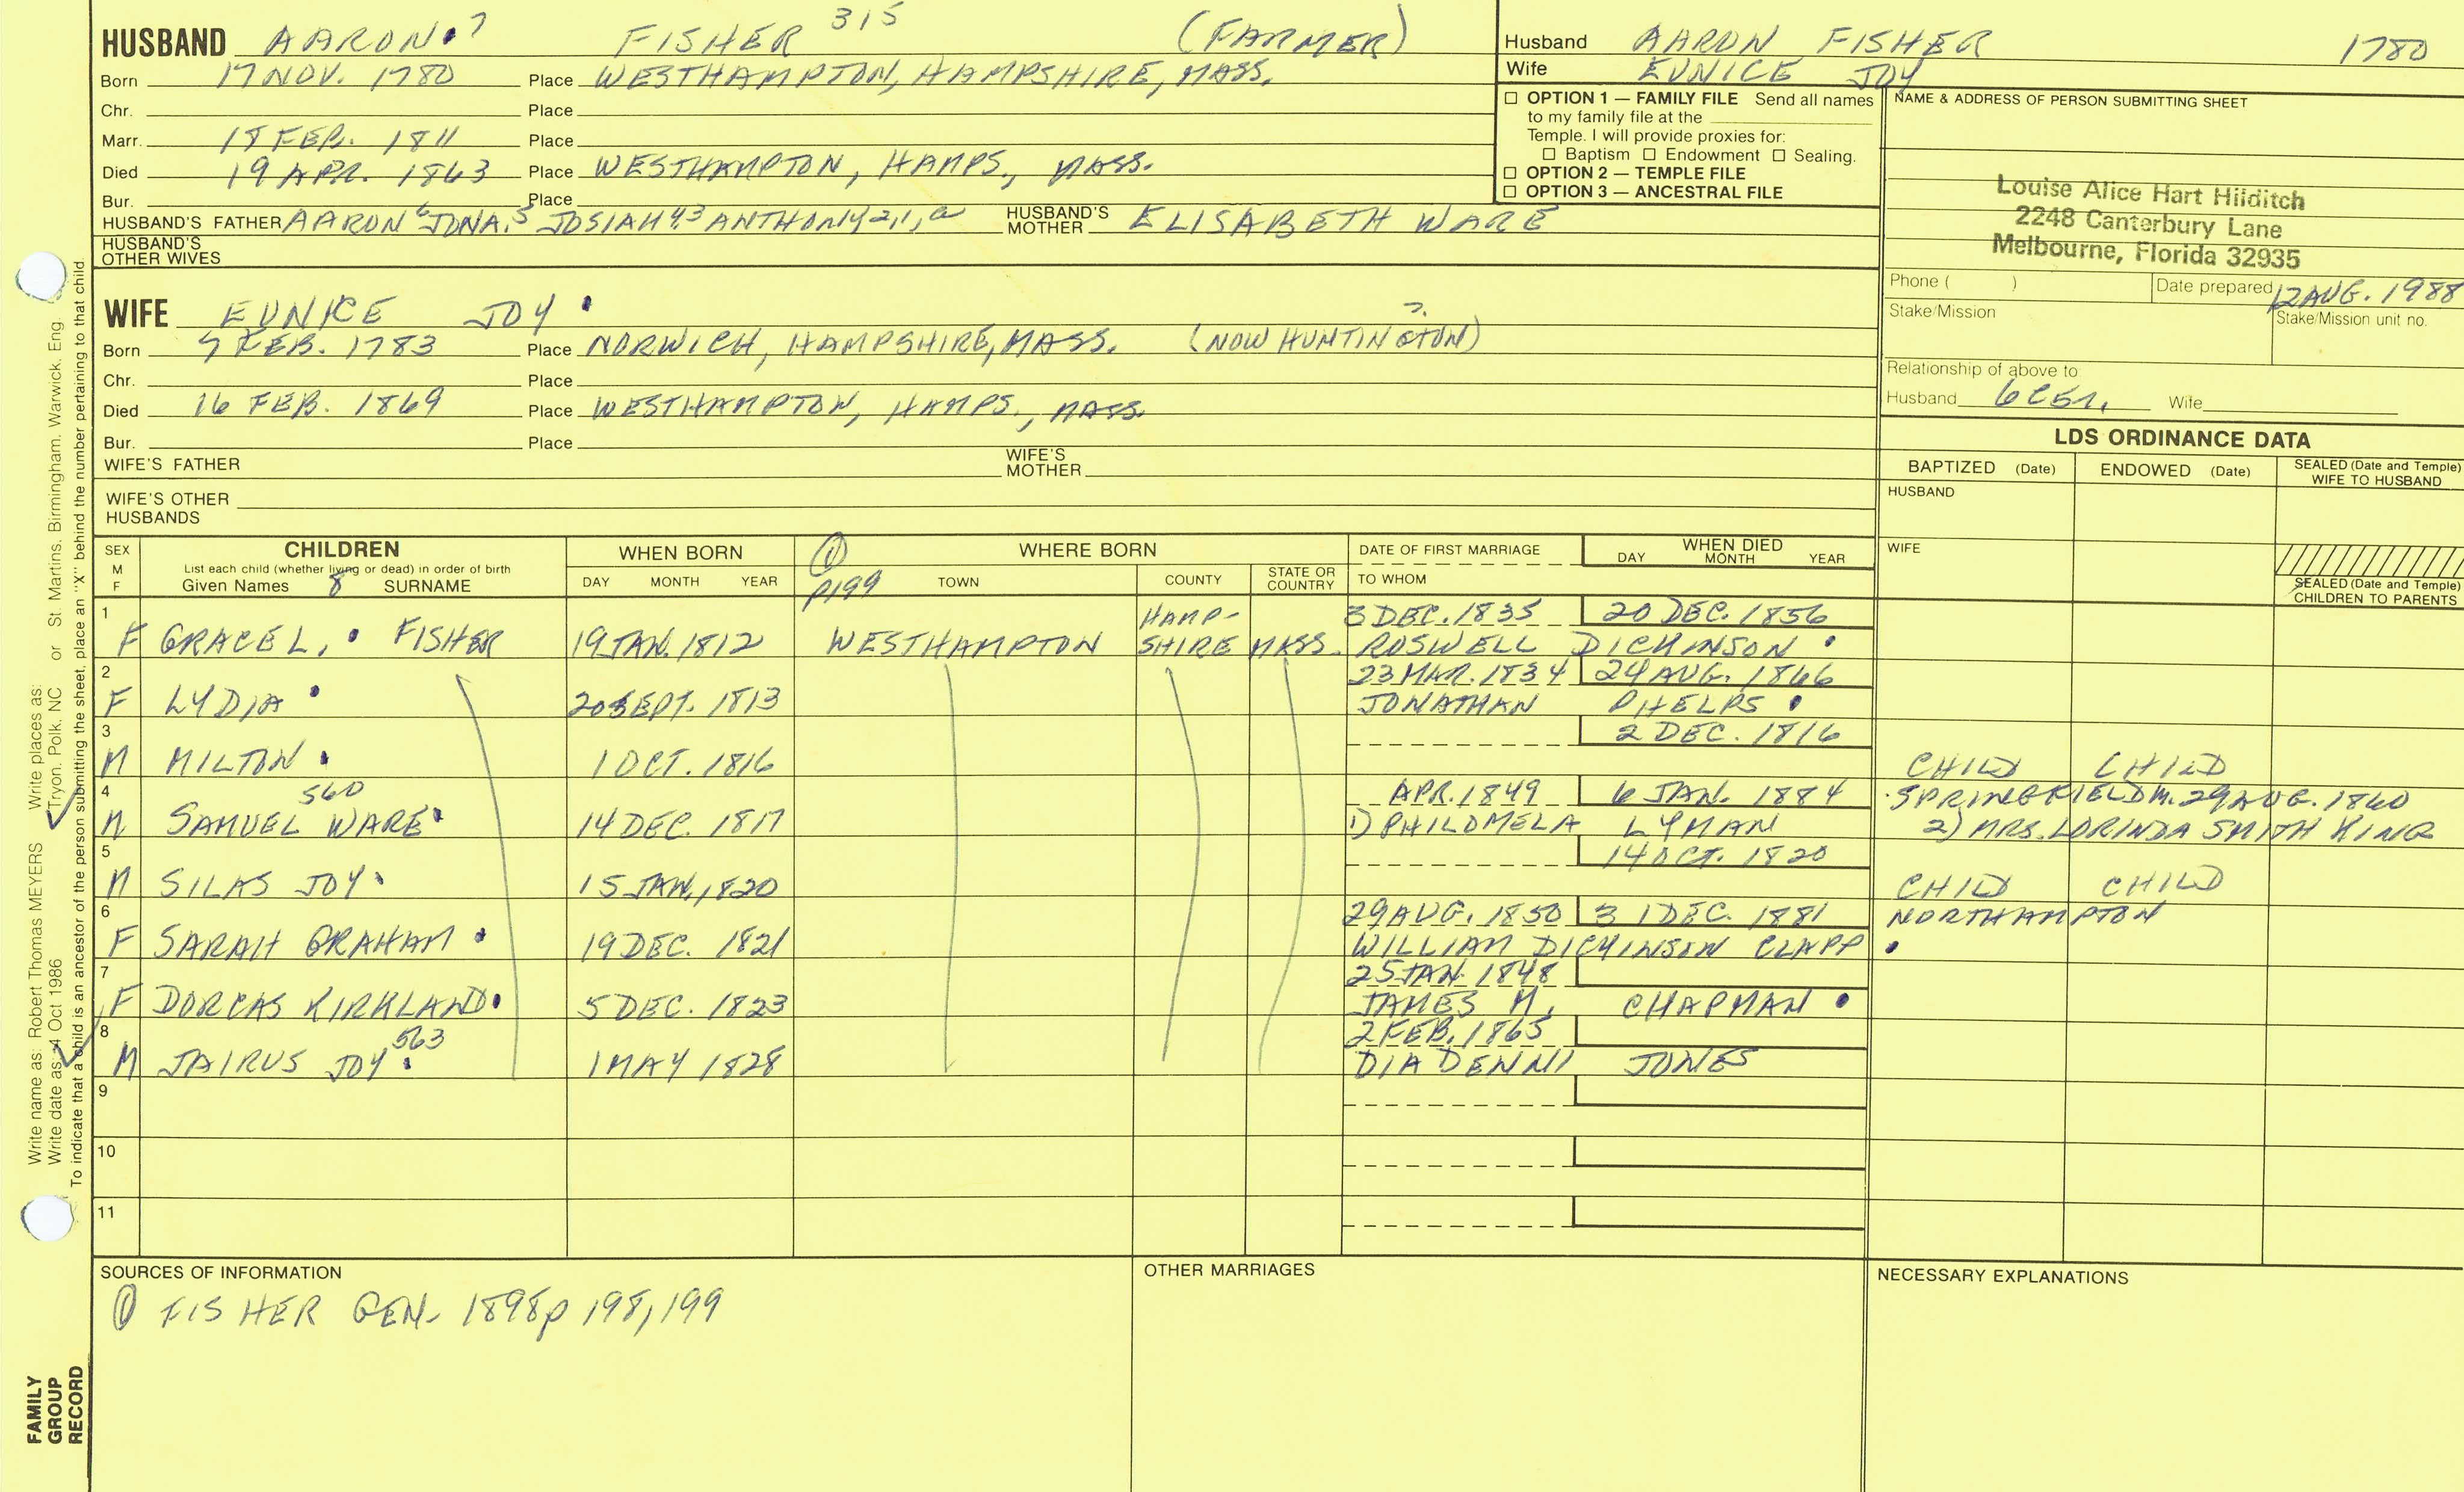 HUSBAND AARON 7 FISHER 315 (FARMER)
Born 17 NOV. 1780 Place WESTHAMPTON, HAMPSHIRE, MASS.
Chr. Place
Marr. 18 FEB. 1811 Place
Died 19 APR. 1863 Place WESTHAMPTON, HAMPS., MASS.
Bur. Place
HUSBAND'S FATHER AARON 6 JONA. 5 JOSIAH 4,3 ANTHONY 2,1,a HUSBAND'S MOTHER ELISABETH WARE
HUSBAND'S OTHER WIVES
Husband AARON FISHER 1780
Wife EUNICE JOY
☐ OPTION 1 — FAMILY FILE Send all names
to my family file at the
Temple. I will provide proxies for:
☐ Baptism ☐ Endowment ☐ Sealing.
☐ OPTION 2 — TEMPLE FILE
☐ OPTION 3 — ANCESTRAL FILE
NAME & ADDRESS OF PERSON SUBMITTING SHEET
Louise Alice Hart Hilditch
2248 Canterbury Lane
Melbourne, Florida 32935
Phone ( ) Date prepared 12 AUG. 1988
Stake/Mission Stake/Mission unit no.
Relationship of above to
Husband 6C5R. Wife
WIFE EUNICE JOY
Born FEB. 1783 Place NORWICH, HAMPSHIRE, MASS. (NOW HUNTINGTON) ?
Chr. Place
Died 16 FEB. 1869 Place WESTHAMPTON, HAMPS., MASS.
Bur. Place
WIFE'S FATHER WIFE'S MOTHER
WIFE'S OTHER HUSBANDS
LDS ORDINANCE DATA
BAPTIZED (Date) ENDOWED (Date) SEALED (Date and Temple) WIFE TO HUSBAND
HUSBAND
WIFE
SEALED (Date and Temple) CHILDREN TO PARENTS
SEX M F CHILDREN WHEN BORN ① WHERE BORN DATE OF FIRST MARRIAGE WHEN DIED
List each child (whether living or dead) in order of birth DAY MONTH YEAR
Given Names 8 SURNAME DAY MONTH YEAR P199 TOWN COUNTY STATE OR COUNTRY TO WHOM
1 HAMP- 3 DEC. 1835 20 DEC. 1856
F GRACE L. FISHER 19 JAN. 1812 WESTHAMPTON SHIRE MASS. ROSWELL DICKINSON
2 23 MAR. 1834 24 AUG. 1866
F LYDIA 20 SEPT. 1813 JONATHAN PHELPS
3 2 DEC. 1816
M MILTON 1 OCT. 1816 CHILD CHILD
4 560 APR. 1849 6 JAN. 1884 SPRINGFIELD M. 29 AUG. 1860
M SAMUEL WARE 14 DEC. 1817 1) PHILOMELA LYMAN 2) MRS. LORINDA SMITH KING
5 14 OCT. 1820
M SILAS JOY 15 JAN. 1820 CHILD CHILD
6 29 AUG. 1850 31 DEC. 1881 NORTHAMPTON
F SARAH GRAHAM 19 DEC. 1821 WILLIAM DICKINSON CLAPP
7 25 JAN. 1848
F DORCAS KIRKLAND 5 DEC. 1823 JAMES M. CHAPMAN
8 563 2 FEB. 1865
M JAIRUS JOY 1 MAY 1828 DIADENNI JONES
9
10
11
SOURCES OF INFORMATION OTHER MARRIAGES NECESSARY EXPLANATIONS
① FISHER GEN. 1898 p 198, 199
Write name as: Robert Thomas MEYERS Write places as: Tryon, Polk, NC or St. Martins, Birmingham, Warwick, Eng.
Write date as: 4 Oct 1986
To indicate that a child is an ancestor of the person submitting the sheet, place an "X" behind the number pertaining to that child.
FAMILY
GROUP
RECORD